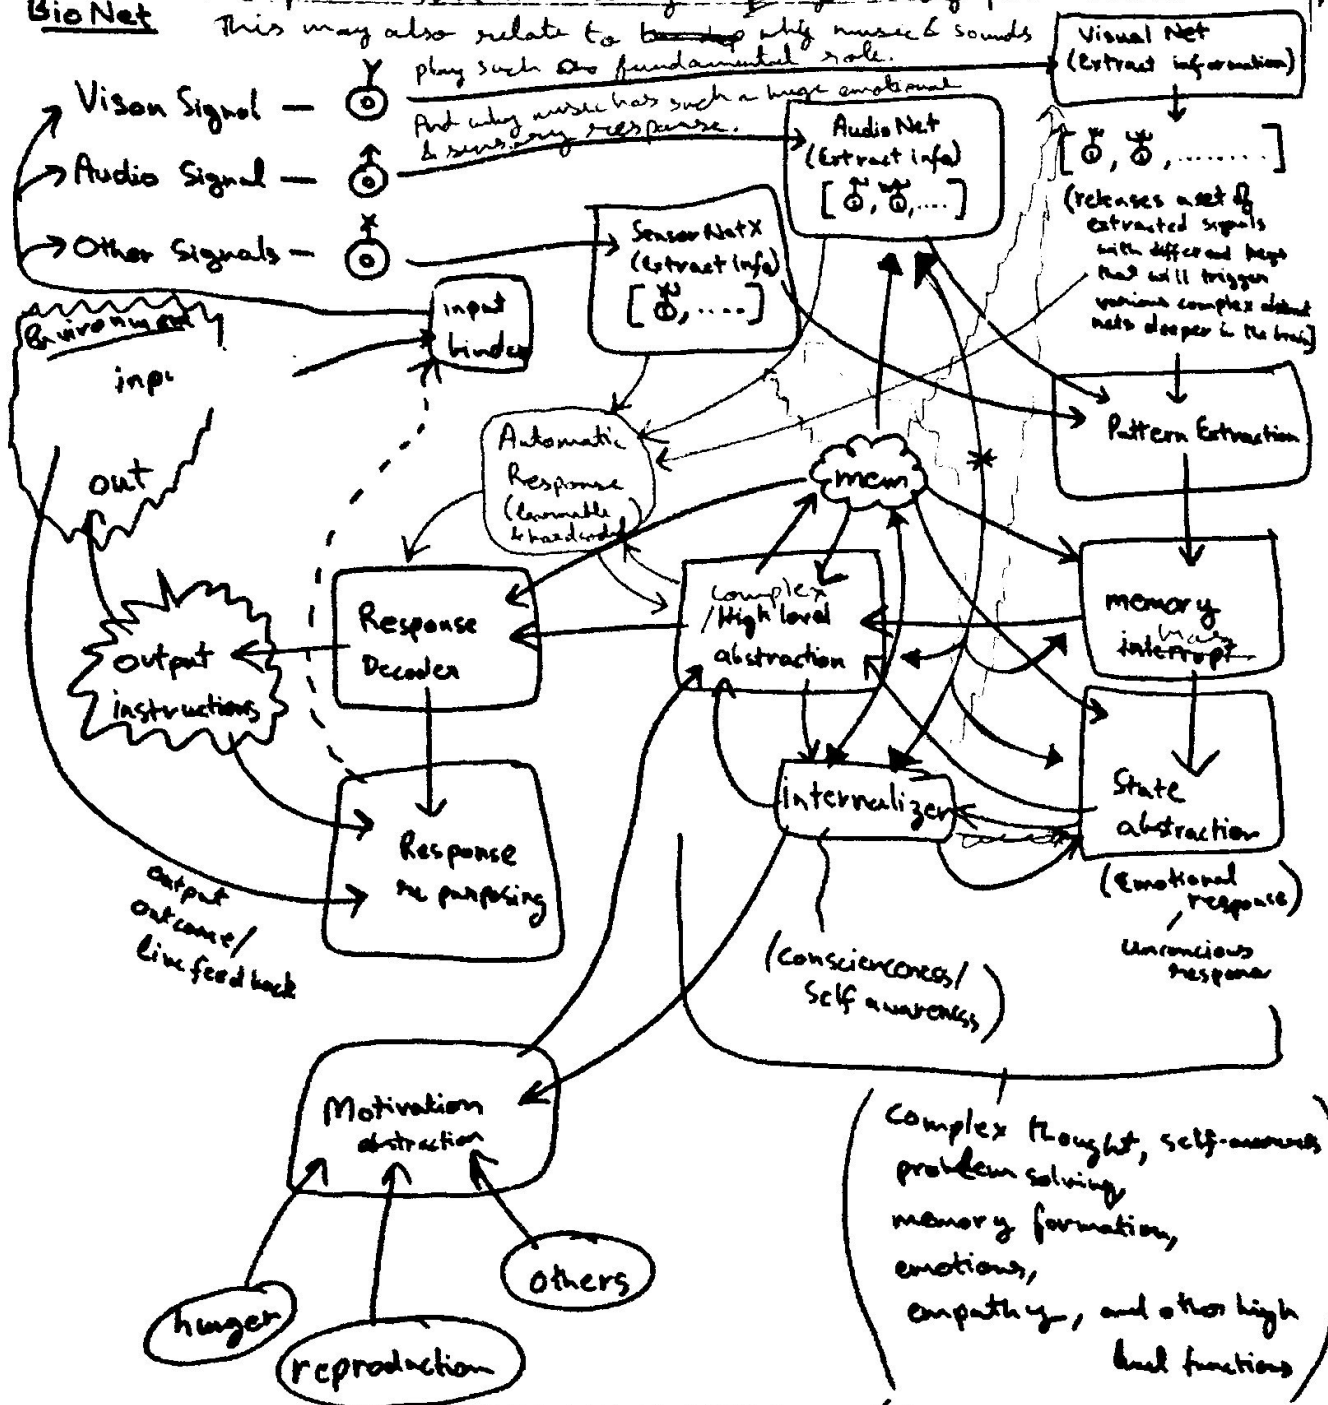 BioNet
This may also relate to why music & sounds
play such fundamental role.
And why music has such a huge emotional
& sensory response.
Vison Signal —
Audio Signal —
Other Signals —
Visual Net
(Extract information)
[ , , ........]
(releases a set of
extracted signals
with different keys
that will trigger
various complex abstract
nets deeper in the brain]
Audio Net
(Extract info)
[ , , ....]
Sensor Net X
(Extract info)
[ , ....]
input
binder
Environment
inp
out
Automatic
Response
(learnable
& hardcoded)
mem
Pattern Extraction
Response
Decoder
complex
/High level
abstraction
memory
interrupt
output
instructions
internalizer
State
abstraction
(Emotional
response)
/
unconcious
response
Response
re purposing
output
outcome/
live feedback
(conscienceness/
Self awareness)
Motivation
abstraction
hunger
reproduction
others
(complex thought, self-awareness
problem solving,
memory formation,
emotions,
empathy, and other high
level functions)